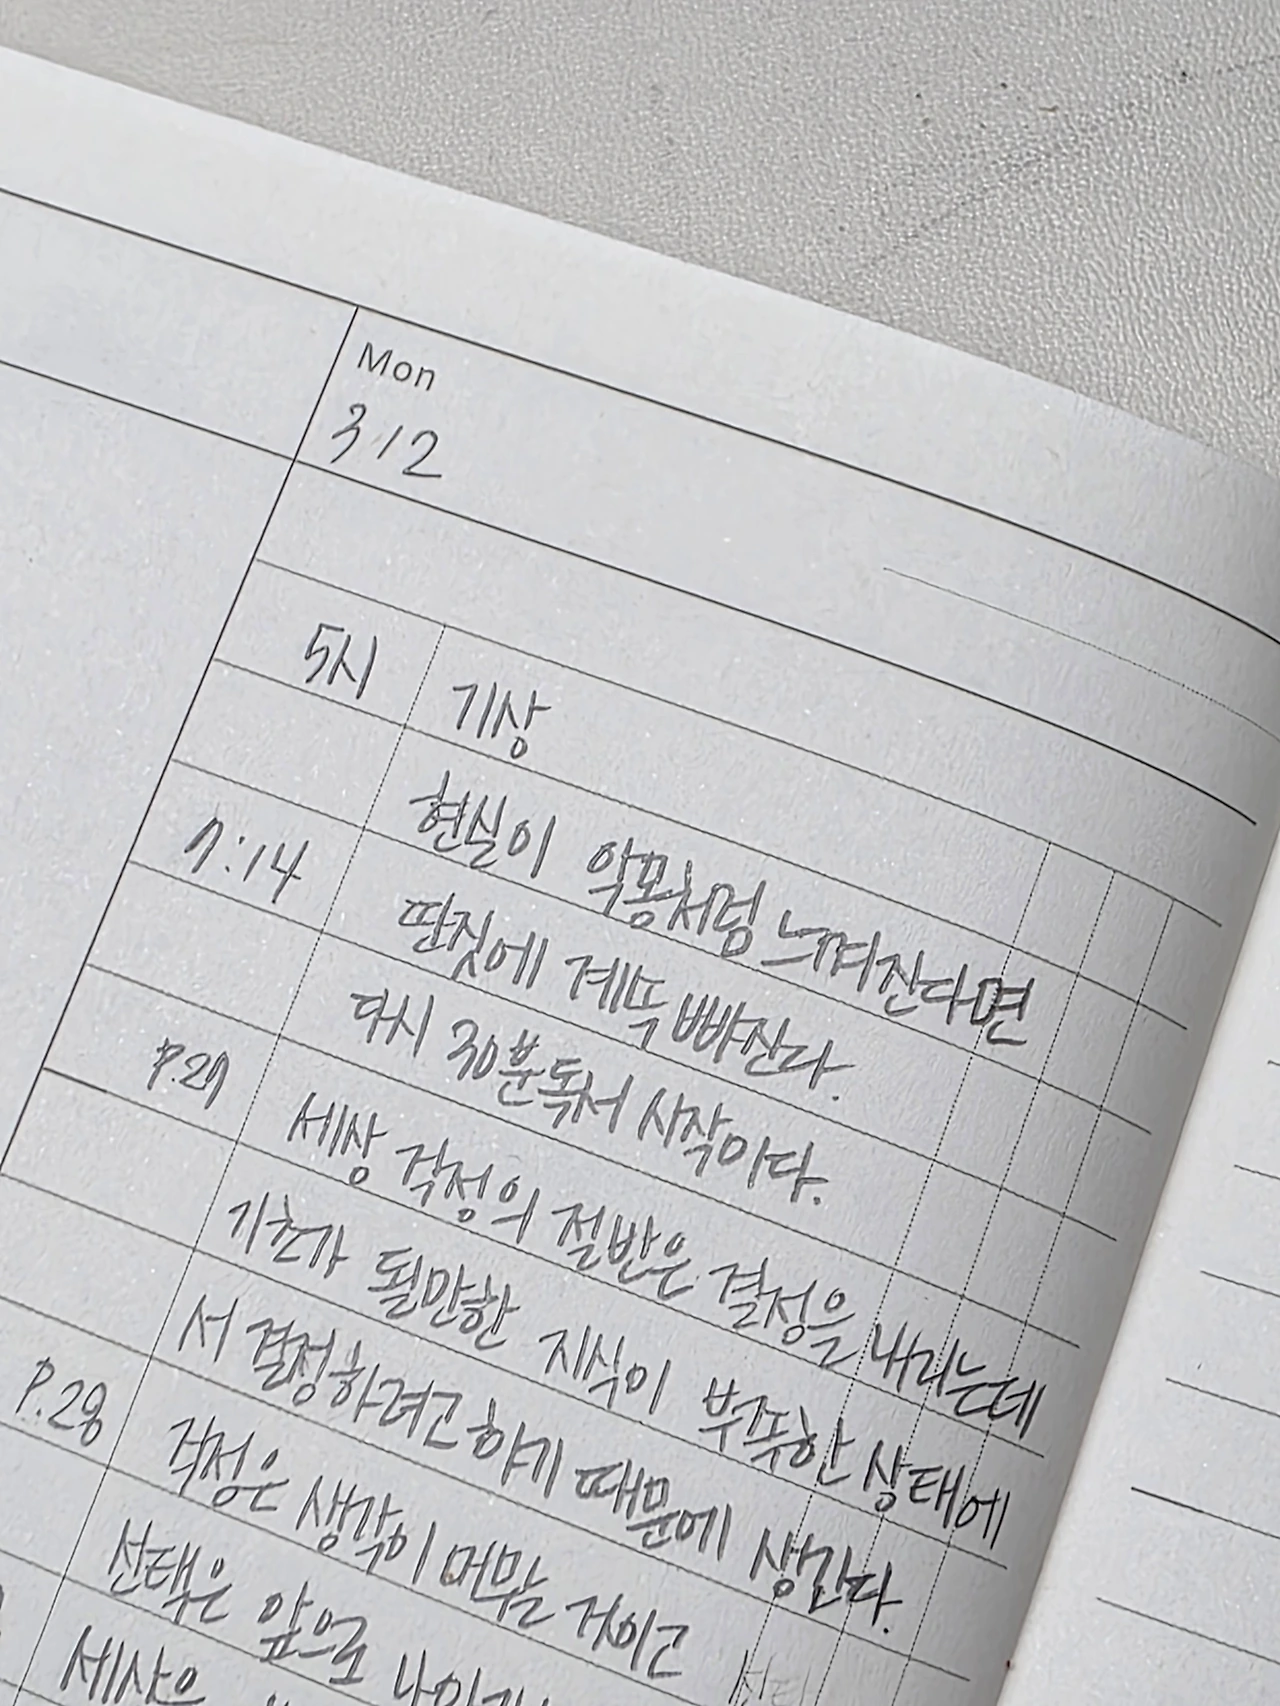 Mon
3/2
5시 기상
현실이 악몽처럼 느껴진다면
7:14 딴짓에 계속 빠진다.
다시 30분 독서 시작이다.
P.27 세상 걱정의 절반은 결정을 내리는데
기초가 될만한 지식이 부족한 상태에
서 결정하려고 하기 때문에 생긴다.
P.28 걱정은 생각이 머무는 것이고
선택은 앞으로